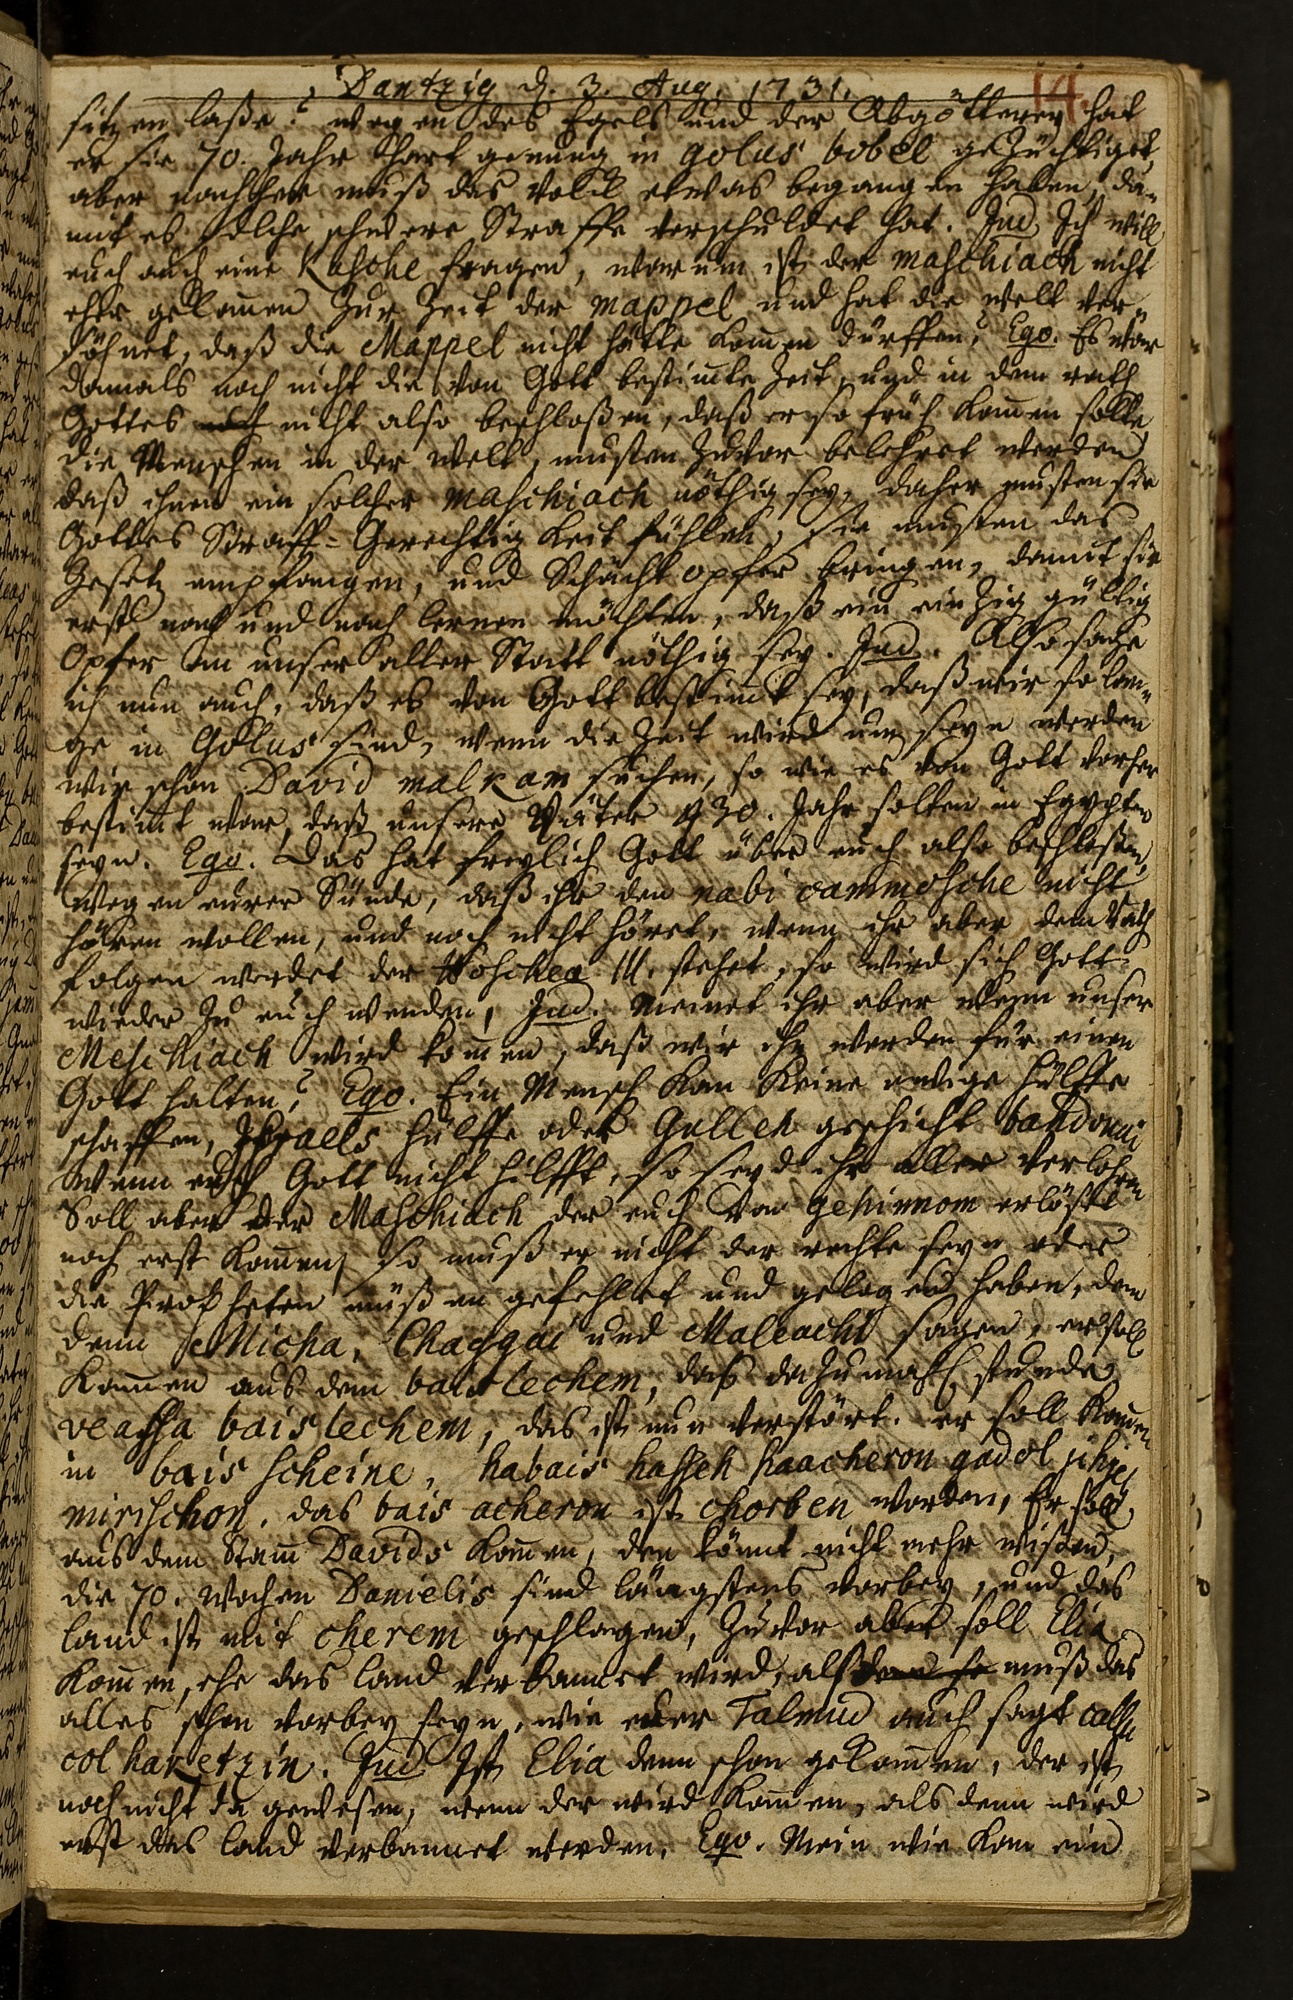 Dantzig d. 3. Aug. 1731. 14.
sitzen laße? wegen des Egels und der Abgötterey hat
er sie 70. Jahr hart genung in golus bobel gezüchtiget,
aber nachher muß das Volck etwas begangen haben, da-
mit es solche schwere Straffe verschuldet hat. Jud Ich will
euch auch eine Kasche fragen, warum ist der maschiach nicht
eher gekomen zur Zeit der mappel und hat die welt ver-
söhnet, daß die Mappel nicht hätte komen dürffen? Ego. Es war
damals noch nicht die von Gott bestimte Zeit, und in dem rath
Gottes nicht also beschloßen, daß er so früh komen solte,
die Menschen in der welt, musten zuvor belehret werden
daß ihnen ein solcher maschiach nöthig sey, daher musten sie
Gottes Straff-Gerechtigkeit fühlen, sie musten das
Gesetz empfangen, und Schacht opfer bringen, damit sie
erst nach und nach lernen möchten, daß ein einzig gültig
Opfer an unser aller Statt nöthig sey. Jud. Also sage
ich nun auch, daß es von Gott bestimt sey, daß wir so lan-
ge in Golus sind, wenn die Zeit wird um seyn werden
wir schon David malkam suchen, so wie es von Gott vorher
bestimt war, daß unsere Väter 430. Jahr solten in Egypten
seyn. Ego. Das hat freylich Gott über euch also beschloßen,
wegen eurer Sünde, daß ihr den nabi cammosche nicht
hören wollen, und noch nicht höret, wenn ihr aber dem Rath
folgen werdet der Hoschea 14. stehet, so wird sich Gott
wieder zu euch wenden, Jud. Meinet ihr aber wenn unser
Meschiach wird komen, daß wir ihn werden für einen
Gott halten? Ego. Ein Mensch kan keine ewige Hülffe
schaffen, Israels Hülffe oder Gulleh geschicht bahdonai
Wenn euch Gott nicht hilfft, so seyd ihr aller verlohren
Soll aber der Maschiach der euch von gehinnom erlöset
noch erst komen, so muß er nicht der rechte seyn oder
die Propheten müßen gefehlet und gelogen haben, dem
denn Micha, Chaggai und Maleachi sagen, er soll
komen aus dem bais lechem, das dazumahl stunde
veassa bais lechem, das ist nun verstört. er soll komen
in bais scheine, habais hasseh haacheron gadol jihje
mirischon. das bais acheron ist chorben worden, Er soll
aus dem Stam Davids komen, den könnt nicht mehr wißen,
die 70. Wochen Danielis sind längstens vorbey, und das
land ist mit cherem geschlagen, zuvor aber soll Elia
komen, ehe das land verbannet wird, also muß das
alles schon vorbey seyn, wie euer Talmud auch sagt callu
col haketzin. Jud Ist Elia denn schon gekomen, der ist
noch nicht da gewesen, wenn der wird komen, als denn wird
erst das land verbannet werden. Ego. Mein wie kan ein